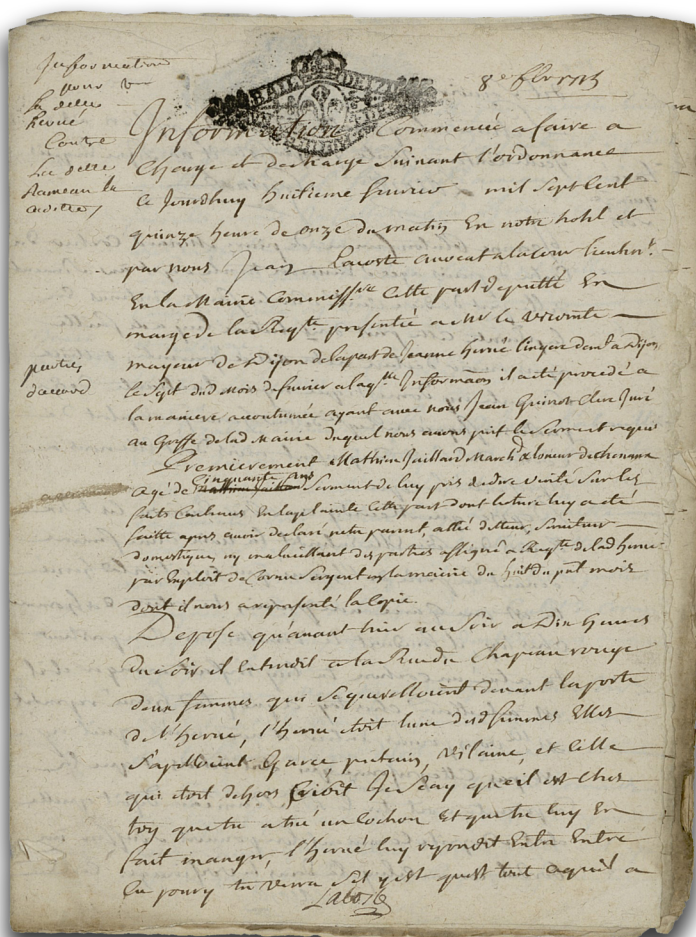 Information
pour
la delle
hervé
Contre
La delle
Rameau la
cadette
8e febvr 1715
Information Commencée a faire a
Charge et decharge Suivant l'ordonnance
Ce Jourdhuy huitieme fevrier mil Sept Cent
quinze heure de onze du matin En notre hotel et
par nous Jean Lacoste avocat a la cour
En la Mairie Commissre Cette part deputté En
marge de la Reqte presentée a Mr le vicomte
mayeur de Dijon de la part de Jeanne hervé lingere demt a Dijon
le Sept dud mois de fevrier a laqlle Informaon il a eté procedé a
la maniere accoutumée ayant avec nous Jean Guinot Clerc Juré
au Greffe de lad Mairie duquel nous avons prit le Serment requis
parties
d'accord
Premierement Mathieu Jaillard March
agé de Cinquante ans Serment de luy pris de dire verité Sur les
faits Contenus En la plainte Cette part dont lecture luy a eté
faitte apres avoir declaré netre parent, allié, Serviteur
domestique, ny malveillant des parties assigné a Reqte de lad hervé
par Exploit de Cornu Sergent en la mairie du huit du pnt mois
dont il nous a representé la Copie.
Depose qu'avant hier au Soir a Dix heures
du Soir il Entendit a la Rue du Chapeau rouge
deux femmes qui Se querelloient devant la porte
de l'hervé, l'hervé etoit lune desd femmes Elles
S'apelloient Garce, putain, vilaine, et Celle
qui etoit dehors Crioit Je Scay qu'il est Ches
toy que tu a tué un Cochon Et que tu luy En
fait manger, l'hervé luy repondit Entre Entre
tu verra Sil y est quest tout aquil a
Lacoste